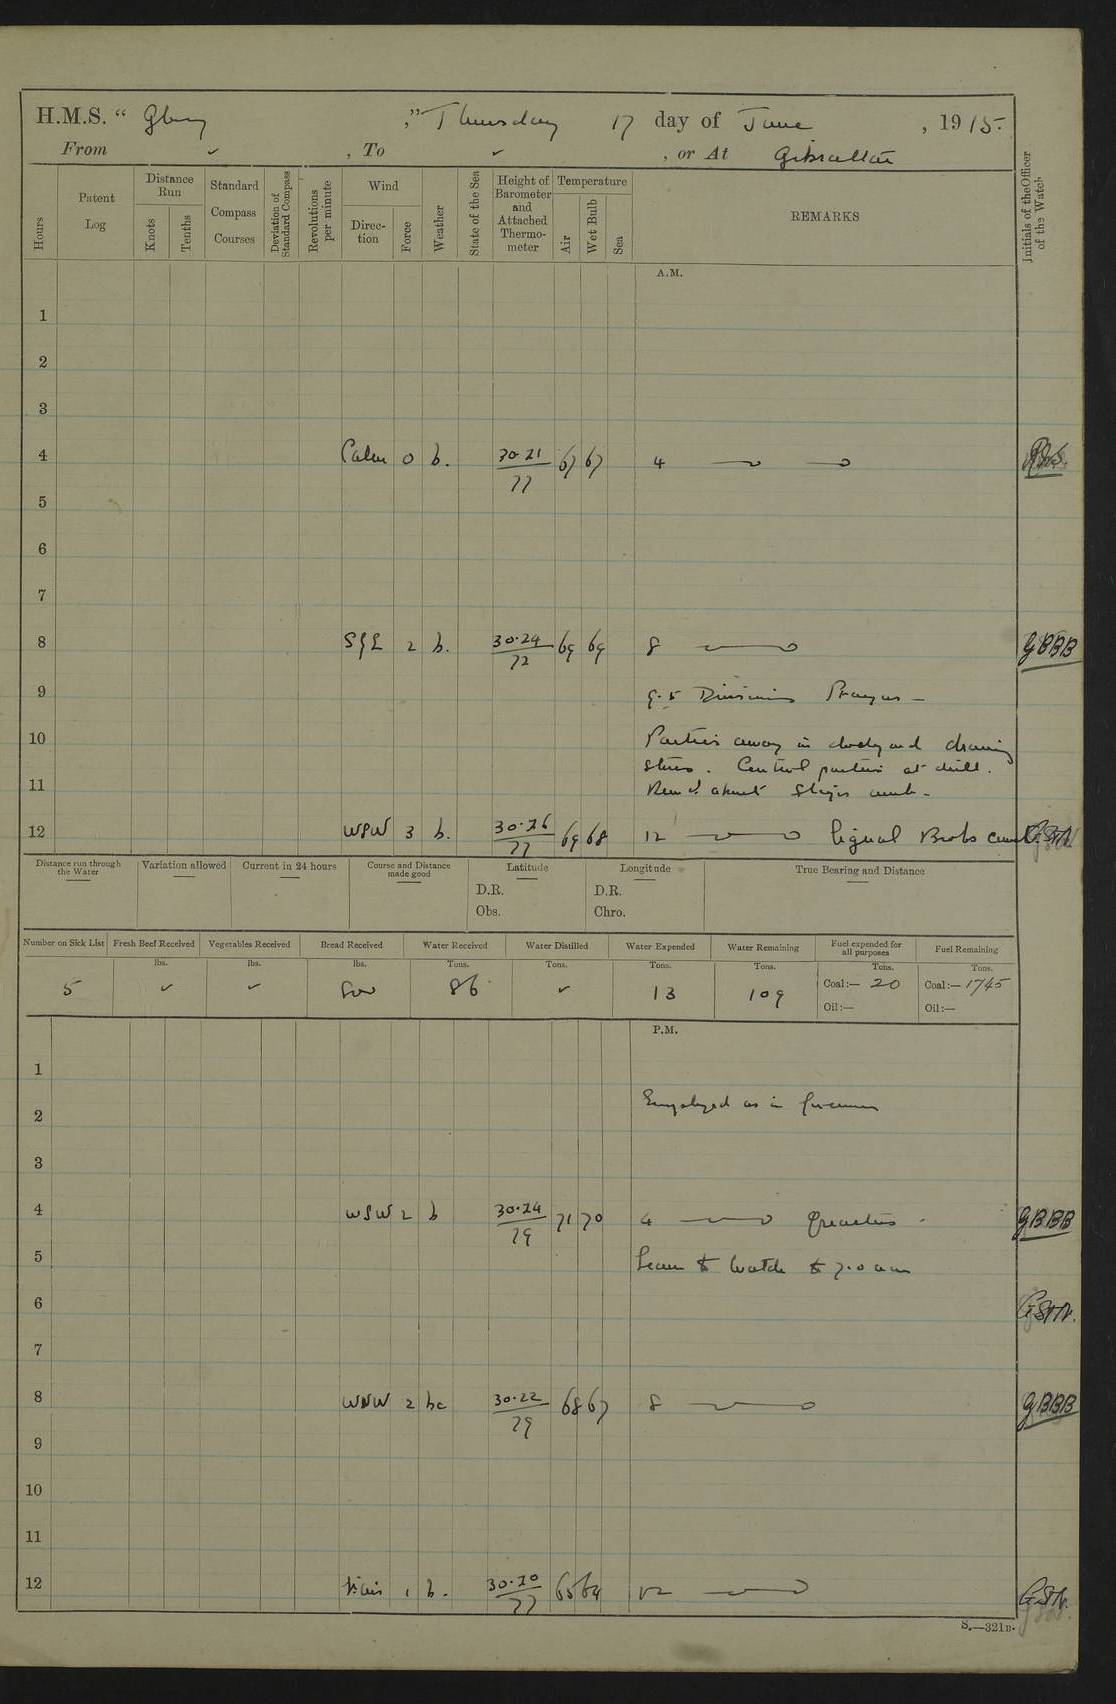 H.M.S. “ Glory ,” Thursday 17 day of June , 1915.
From ✓ , To ✓ , or At Gibraltar
Hours
Patent Log
Distance Run
Knots
Tenths
Standard Compass Courses
Deviation of Standard Compass
Revolutions per minute
Wind
Direction
Force
Weather
State of the Sea
Height of Barometer and Attached Thermometer
Temperature
Air
Wet Bulb
Sea
REMARKS
Initials of the Officer of the Watch
A.M.
1
2
3
4 Calm 0 b. 30.21 77 67 67 4
5
6
7
8 S&E 2 b. 30.24 72 69 69 8 GBBB
9 9.5 Divisions Prayers –
10 Parties away in dockyard drawing
stores. Control parties at drill.
11 Rem. about Ships work.
12 WSW 3 b. 30.26 77 69 68 12 Signal Books
Distance run through the Water
Variation allowed
Current in 24 hours
Course and Distance made good
Latitude
D.R.
Obs.
Longitude
D.R.
Chro.
True Bearing and Distance
Number on Sick List
Fresh Beef Received
Vegetables Received
Bread Received
Water Received
Water Distilled
Water Expended
Water Remaining
Fuel expended for all purposes
Fuel Remaining
lbs. lbs. lbs. Tons. Tons. Tons. Tons. Tons. Tons.
5 ✓ ✓ 800 86 ✓ 13 109 Coal:— 20 Coal:— 1745
Oil:— Oil:—
P.M.
1
2 Employed as in forenoon
3
4 WSW 2 b 30.24 79 71 70 4 Quarters. GBBB
5 Leave to Watch to 7.0 am
6 GStN.
7
8 WNW 2 bc 30.22 79 68 67 8 GBBB
9
10
11
12 1 b. 30.20 77 65 64 12 GStN.
S.—321D.